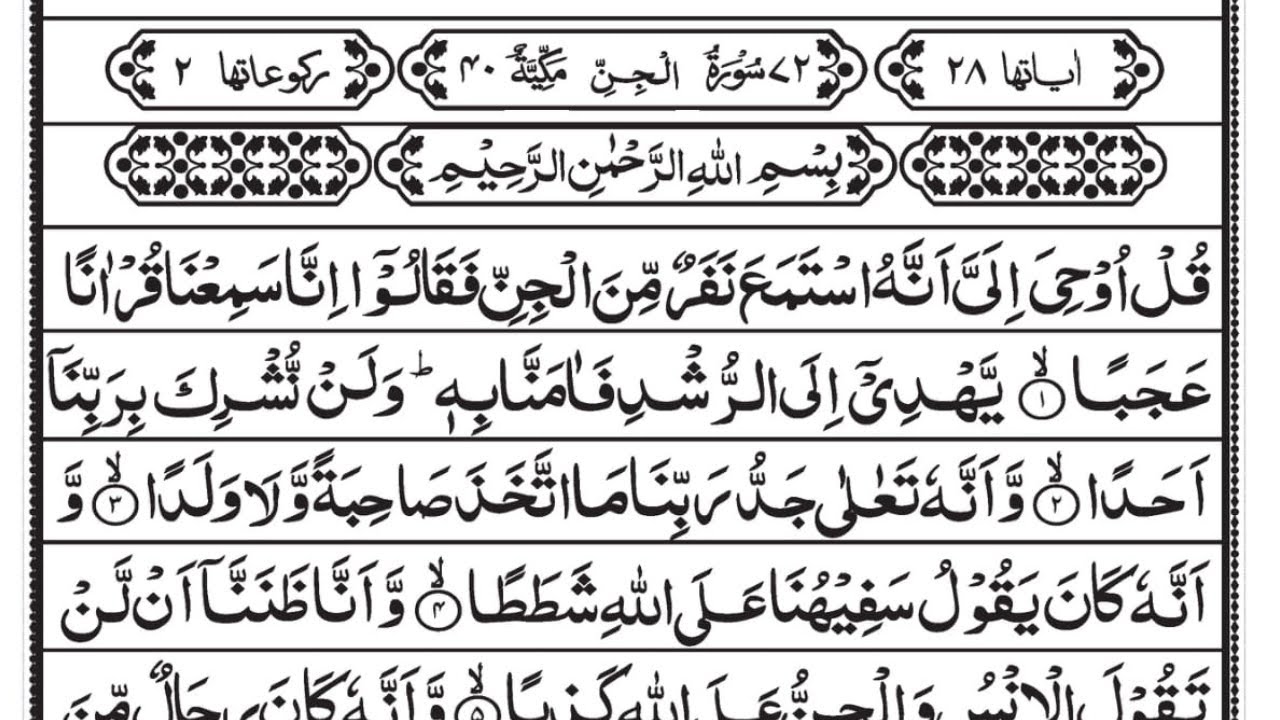 اٰياتها ٢٨ ٧٢ سُوْرَةُ الْجِنِّ مَكِّيَّةٌ ٤٠ ركوعاتها ٢
بِسْمِ اللهِ الرَّحْمٰنِ الرَّحِيْمِ
قُلْ اُوْحِيَ اِلَيَّ اَنَّهُ اسْتَمَعَ نَفَرٌ مِّنَ الْجِنِّ فَقَالُوْٓا اِنَّا سَمِعْنَا قُرْاٰنًا
عَجَبًا ۙ‏﴿۱﴾ يَّهْدِيْٓ اِلَى الرُّشْدِ فَاٰمَنَّا بِهٖ ؕ وَلَنْ نُّشْرِكَ بِرَبِّنَآ
اَحَدًا ۙ‏﴿۲﴾ وَّاَنَّهٗ تَعٰلٰى جَدُّ رَبِّنَا مَا اتَّخَذَ صَاحِبَةً وَّلَا وَلَدًا ۙ‏﴿۳﴾ وَّ
اَنَّهٗ كَانَ يَقُوْلُ سَفِيْهُنَا عَلَى اللهِ شَطَطًا ۙ‏﴿۴﴾ وَّاَنَّا ظَنَنَّآ اَنْ لَّنْ
تَقُوْلَ الْاِنْسُ وَالْجِنُّ عَلَى اللهِ كَذِبًا ۙ‏﴿۵﴾ وَّاَنَّهٗ كَانَ رِجَالٌ مِّنَ